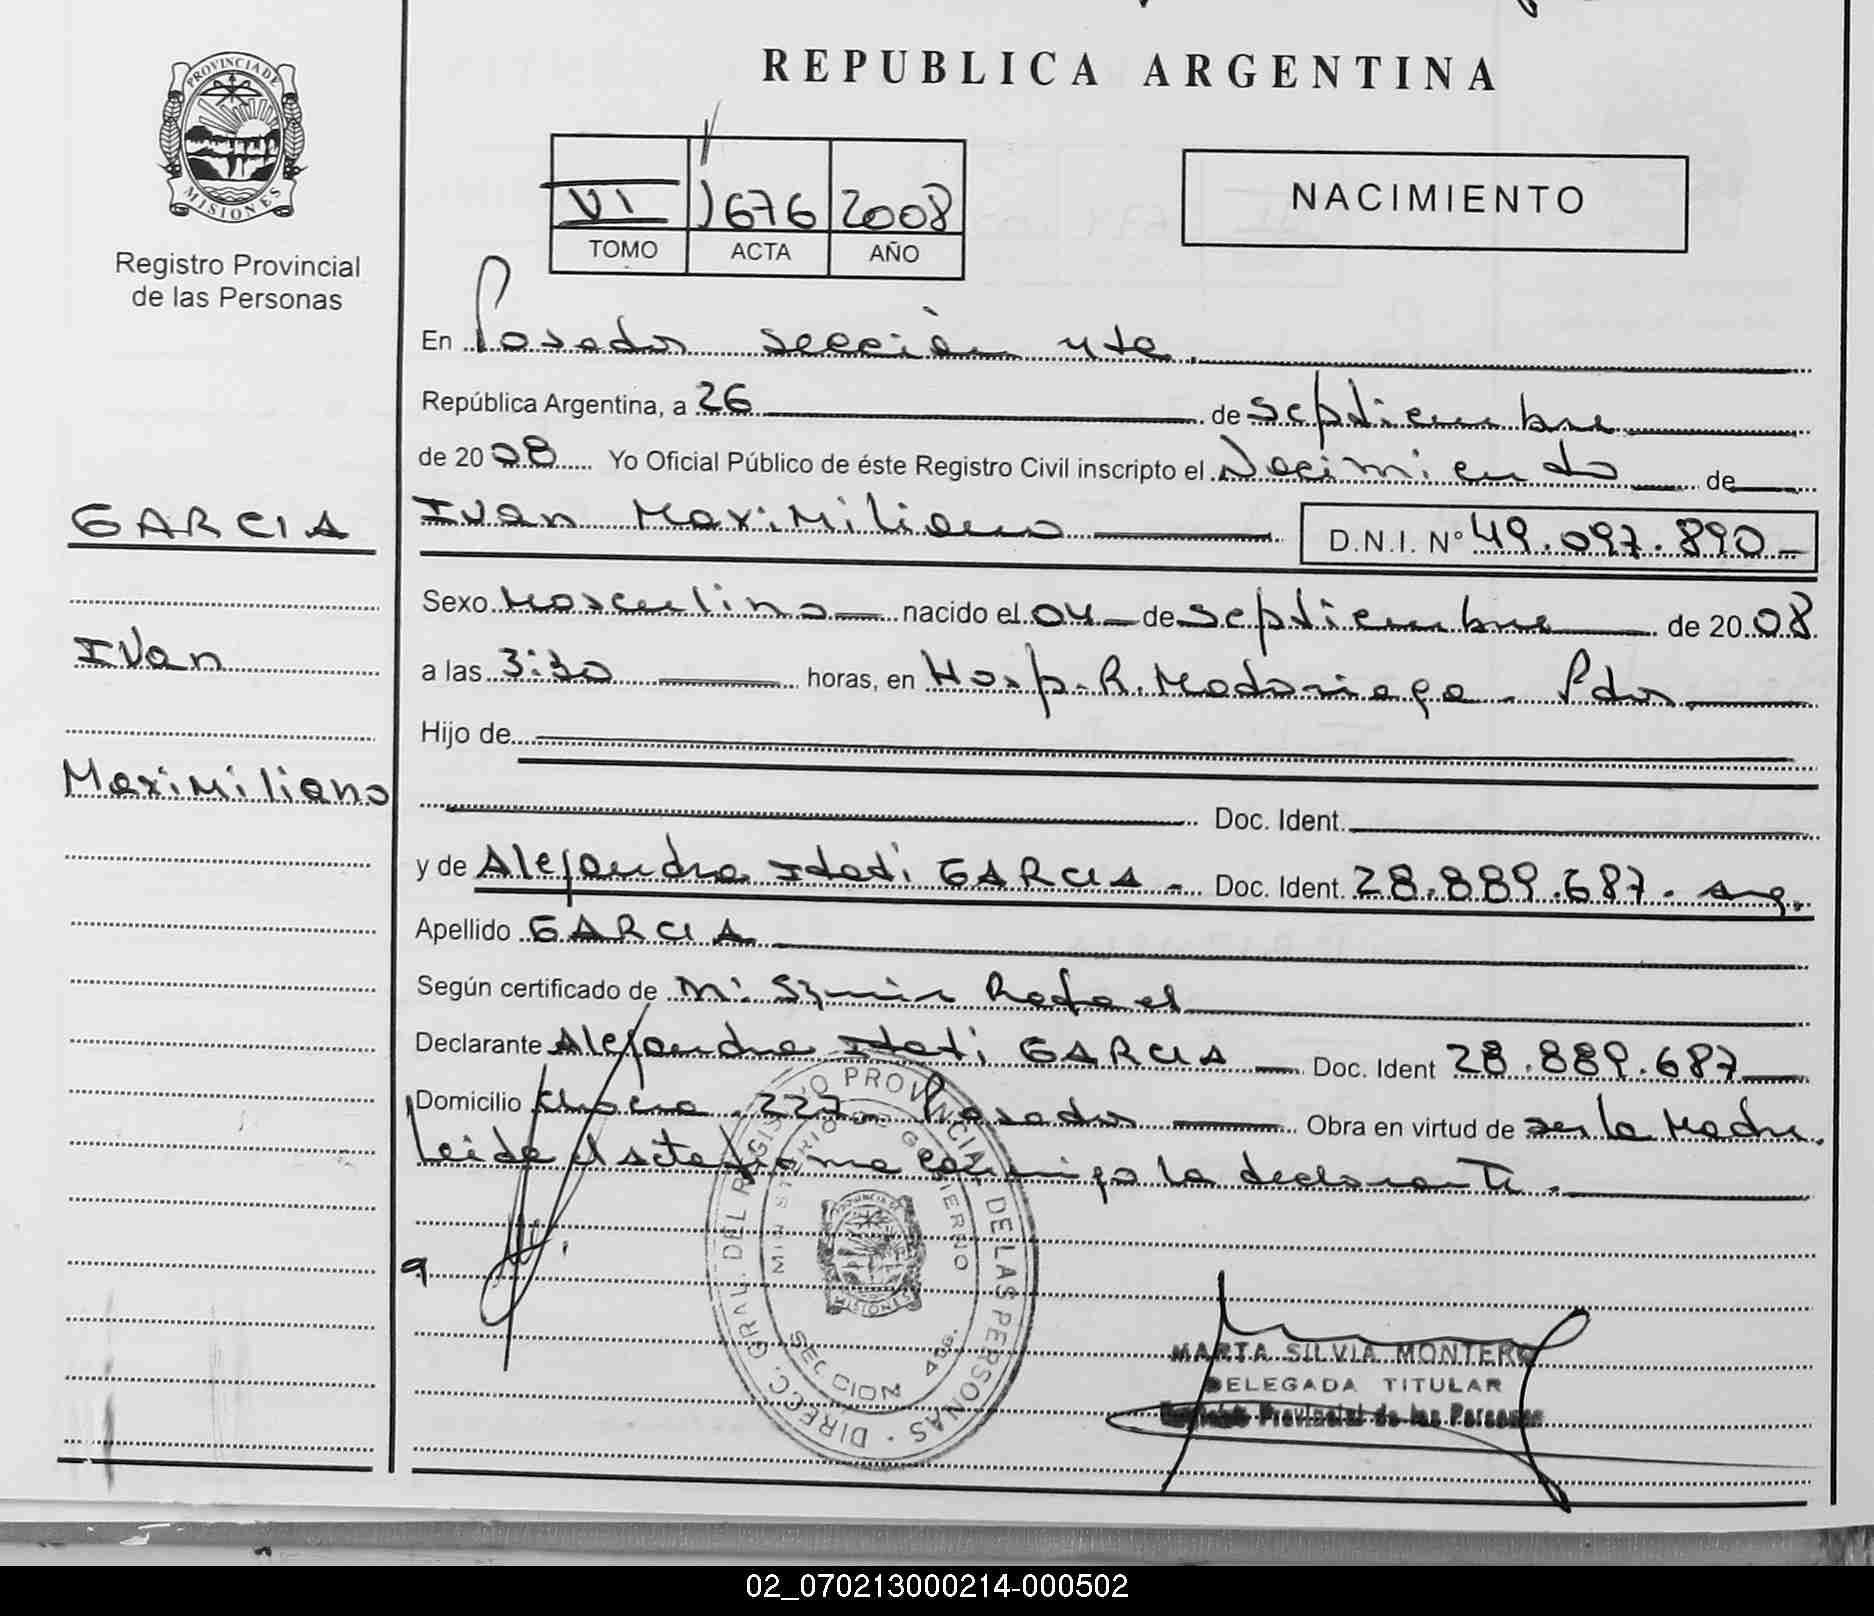 REPUBLICA ARGENTINA
PROVINCIA DE MISIONES
Registro Provincial
de las Personas
VI 1676 2008
TOMO ACTA AÑO
NACIMIENTO
GARCIA
Ivan
Maximiliano
En Posadas sección 4ta.
República Argentina, a 26 de septiembre
de 2008 Yo Oficial Público de éste Registro Civil inscripto el Nacimiento de
Ivan Maximiliano D.N.I. Nº 49.097.890-
Sexo Masculino nacido el 04 de septiembre de 2008
a las 3:30 horas, en Hosp. R. Madariaga - Pdas
Hijo de
Doc. Ident.
y de Alejandra Itati GARCIA - Doc. Ident. 28.889.687. arg.
Apellido GARCIA
Según certificado de Rafael
Declarante Alejandra Itati GARCIA Doc. Ident 28.889.687
Domicilio 227 - Posadas Obra en virtud de ser la Madre.
Leida el acta firma conmigo la declarante.
DIRECC. GRAL. DEL REGISTRO PROVINCIAL DE LAS PERSONAS
MINISTERIO DE GOBIERNO
SECCION 4ta.
MISIONES
MARTA SILVIA MONTERO
DELEGADA TITULAR
Registro Provincial de las Personas
02_070213000214-000502